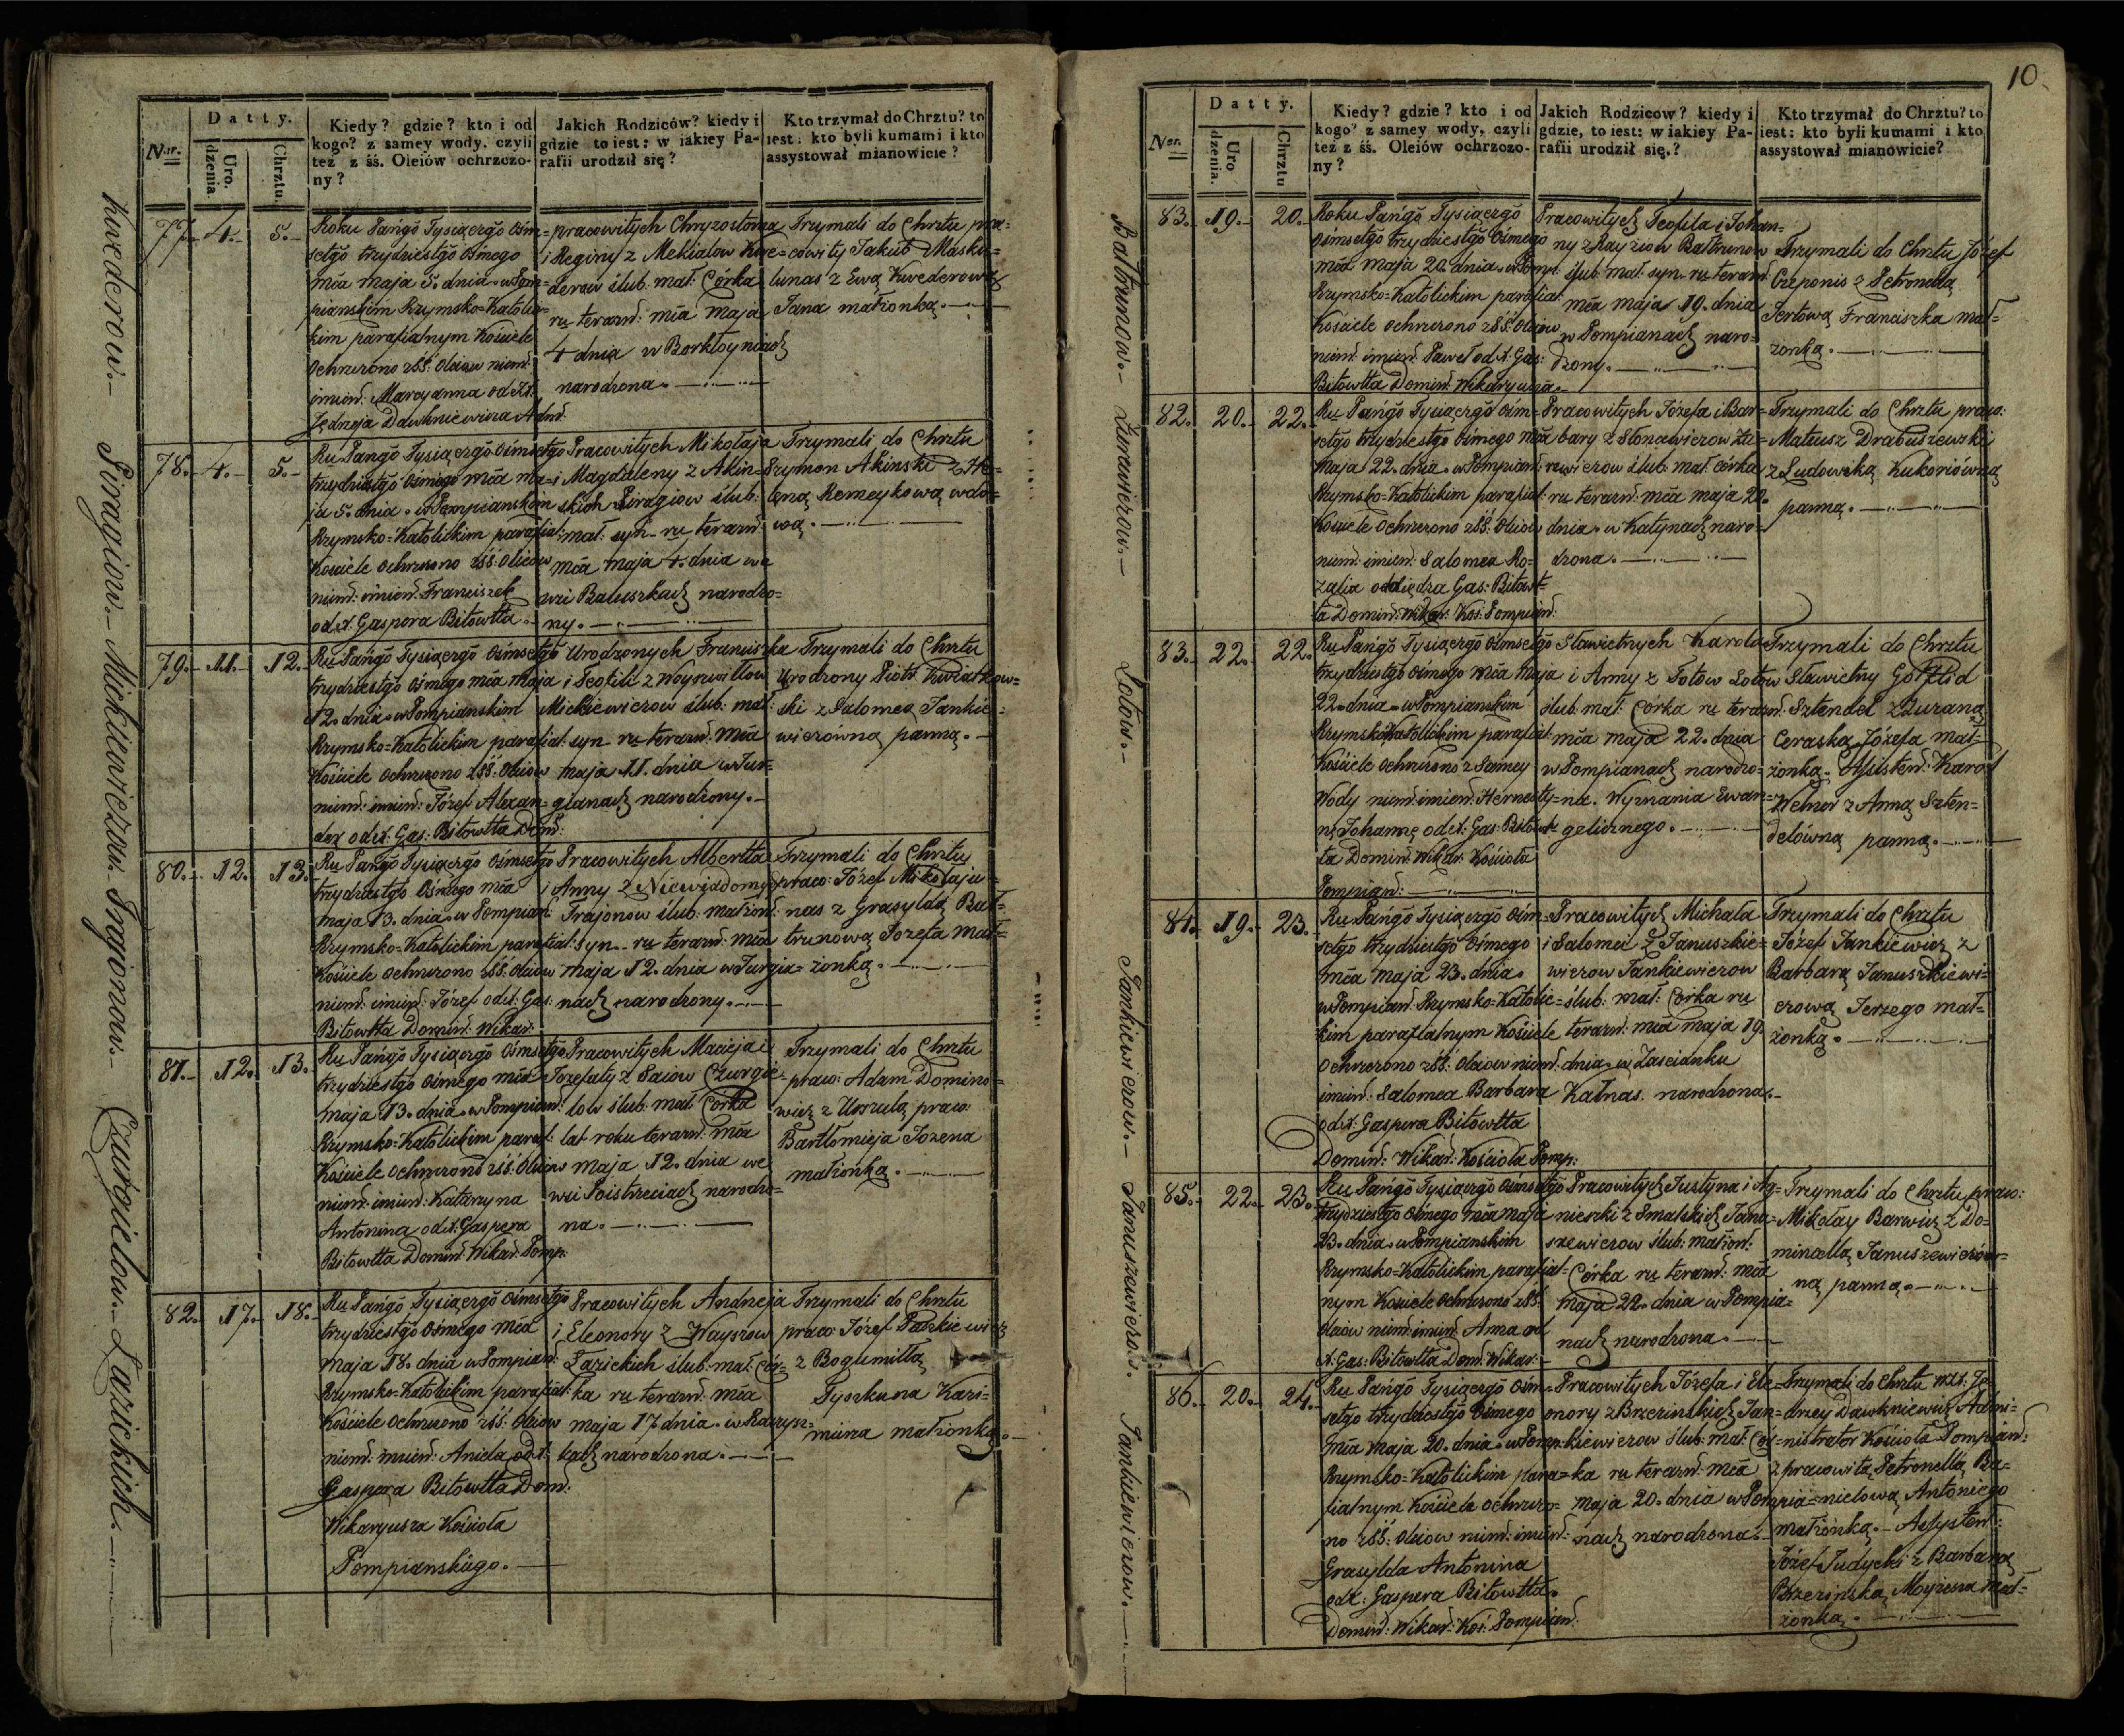 Kwederow.- Siragiow.- Mickiewiczow. Trajonow.- Czurgielow.- Łazickich.
Ner.
Datty.
Uro.
dzenia.
Chrztu.
Kiedy? gdzie? kto i od
kogo? z samey wody, czyli
też z śś. Oleiów ochrzczo-
ny?
Jakich Rodziców? kiedy i
gdzie to iest: w iakiey Pa-
rafii urodził się?
Kto trzymał do Chrztu? to
iest: kto byli kumami i kto
assystował mianowicie?
77.- 4.- 5.-
Roku Pańgŏ Tysiączgŏ Ośm=
setgŏ trzydziestgŏ Ośmego
mca maja 5. dnia w Pom=
pianskim Rzymsko-Katolic=
kim parafialnym Kościele
Ochrzczono zŚŚ: Oleiow niem:
imien: Maryanna od X:
Jędrzeja Dawkniewicza Adm:
pracowitych Chryzostoma
i Reginy z Mekialow Kwe=
derow ślub: mał: Córka
ru terazn: mca maja
4 dnia w Borkłoyniach
narodzona.
Trzymali do Chrztu pra=
cowity Jakub Masku=
lunas z Ewą Kwederową
Jana małżonką.
78.- 4.- 5.-
Ru Pańgŏ Tysiączgŏ Ośmsetgŏ
trzydziestgŏ Ośmego mca ma=
ja 5. dnia w Pompianskim
Rzymsko=Katolickim parafial:
Kościele Ochrzczono zŚŚ: Oleiow
niem: imien: Franciszek
od X: Gaspora Bitowtta
Pracowitych Mikołaja
i Magdaleny z Akin=
skich Siragiow ślub:
mał: syn ru terazn:
mca maja 4. dnia we
wsi Bałuszkach narodzo=
ny.
Trzymali do Chrztu
Szymon Akinski z He=
leną Remeykową wdo=
wą.
79.- 11.- 12.-
Ru Pańgŏ Tysiączgŏ Ośmsetgŏ
trzydziestgŏ Ośmego mca maja
12. dnia w Pompianskim
Rzymsko-Katolickim parafial:
Kościele Ochrzczono zŚŚ: Oleiow
niem: imien: Józef Alexan=
der od X: Gas: Bitowtta Dom:
Urodzonych Franciszka
i Teofili z Woyszwiłłow
Mickiewiczow ślub: mał:
syn ru terazn: mca
maja 11. dnia w Jur=
gianach narodzony.-
Trzymali do Chrztu
Urodzony Piotr Kwiatkow=
ski z Salomeą Jankie=
wiczowną panną.-
80.- 12.- 13.-
Ru Pańgŏ Tysiączgŏ Ośmsetgŏ
trzydziestgŏ Ośmego mca
maja 13. dnia w Pompian:
Rzymsko-Katolickim parafial:
Kościele Ochrzczono zŚŚ: Oleiow
niem: imien: Józef od X: Gas:
Bitowtta Domin: Wikar:
Pracowitych Alberta
i Anny z Niewiadomych
Trajonow ślub: małżon:
syn ru terazn: mca
maja 12. dnia w Jurgia=
nach narodzony.
Trzymali do Chrztu
praco: Józef Mikołaju=
nas z Grasyldą Bał=
trunową Jozefa mał=
żonką.
81.- 12.- 13.-
Ru Pańgŏ Tysiączgŏ Ośmsetgŏ
trzydziestgŏ Ośmego mca
maja 13. dnia w Pompian:
Rzymsko-Katolickim paraf:
Kościele Ochrzczono zŚŚ: Oleiow
niem: imien: Katarzyna
Antonina od X: Gaspera
Bitowtta Domin: Wikar: Pomp:
Pracowitych Macieja i
Jozefaty z Saiow Czurgie=
low ślub: mał: Córka
lat roku terazn: mca
maja 12. dnia we
wsi Poistrzeciach narodzo=
na.
Trzymali do Chrztu
praco: Adam Domino=
wicz z Urszulą praco:
Bartłomieja Jozena
małżonką.
82.- 17.- 18.-
Ru Pańgŏ Tysiączgŏ Ośmsetgŏ
trzydziestgŏ Ośmego mca
maja 18. dnia w Pompian:
Rzymsko-Katolickim parafial:
Kościele Ochrzczono zŚŚ: Oleiow
niem: imien: Aniela od X:
Gaspera Bitowtta Dom:
Wikaryusza Kościoła
Pompianskiego.
Pracowitych Andrzeja
i Eleonory z Wayszow
Łazickich ślub: mał: Cór=
ka ru terazn: mca
maja 17 dnia w
kach narodzona.
Trzymali do Chrztu
praco: Józef Paszkiewicz
z Bogumiłłą
Tyszkuna Kazi=
mierza małżonką.
10.
Bałtrunow.- Żurawiczow.- Lotow.- Jankiewiczow.- Januszewiczow. Jankiewiczow.
Ner.
Datty.
Uro
dzenia.
Chrztu
Kiedy? gdzie? kto i od
kogo? z samey wody, czyli
też z śś. Oleiów ochrzczo-
ny?
Jakich Rodzicow? kiedy i
gdzie, to iest: w iakiey Pa-
rafii urodził się.?
Kto trzymał do Chrztu? to
iest: kto byli kumami i kto
assystował mianowicie?
83.- 19.- 20.-
Roku Pańgŏ Tysiączgŏ
Ośmsetgŏ trzydziestgŏ Ośmego
mca maja 20. dnia w Pomp:
Rzymsko-Katolickim parafial:
Kościele Ochrzczono zŚŚ: Oleiow
niem: imien: Paweł od X: Gas:
Bitowtta Domin: Wikaryusza.
Pracowitych Teofila i Johan=
ny z Rayziow Bałtrunow
ślub: mał: syn ru terazn:
mca maja 19. dnia
w Pompianach naro=
dzony.
Trzymali do Chrztu Józef
Czeponis z Petronellą
Jertową Franciszka mał=
żonką.
82. 20.- 22.-
Ru Pańgŏ Tysiączgŏ Ośm=
setgŏ trzydziestgŏ Ośmego mca
maja 22. dnia w Pompian:
Rzymsko-Katolickim parafial:
Kościele Ochrzczono zŚŚ: Oleiow
niem: imien: Salomea Ro=
zalia od Xiędza Gas: Bitowt=
ta Domin: Wikar: Koś: Pompian:
Pracowitych Józefa i Bar=
bary z Stoncewiczow Żu=
rawiczow ślub: mał: córka
ru terazn: mca maja 20.
dnia w Katynach naro=
dzona.
Trzymali do Chrztu praco:
Mateusz Drabuszewski
z Ludowiką Kukoriówną
panną.
83.- 22.- 22.
Ru Pańgŏ Tysiączgŏ Ośmsetgŏ
trzydziestgŏ Ośmego mca maja
22. dnia w Pompianskim
Rzymsko Katolickim parafial:
Kościele Ochrzczono z Samey
Wody niem: imien: Hernesty=
nę Johannę od X: Gas: Bitowt=
ta Domin: Wikar: Kościoła
Pompian:
Sławietnych Karola
i Anny z Fotow Lotow
ślub: mał: Córka ru terazn:
mca maja 22. dnia
w Pompianach narodzo=
na. Wyznania Ewan=
gelicznego.
Trzymali do Chrztu
Sławietny Gotflid
Sztendel z Zuzaną
Ceraską Józefa mał=
żonką. Assisten: Karol
Welner z Anną Szten=
delówną panną.
84.- 19.- 23.
Ru Pańgŏ Tysiączgŏ Ośm=
setgo trzydziestgŏ Ośmego
mca maja 23. dnia
w Pompian: Rzymsko=Katolic=
kim parafialnym Kościele
Ochrzczono zŚŚ: Oleiow niem:
imien: Salomea Barbara
od X: Gaspera Bitowtta
Domin: Wikar: Kościoła Pomp:
Pracowitych Michała
i Salomei z Januszkie=
wiczow Jankiewiczow
ślub: mał: Córka ru
terazn: mca maja 19.
dnia w Zascianku
Katnas. narodzona.-
Trzymali do Chrztu
Józef Jankiewicz z
Barbarą Januszkiewi=
czową Jerzego mał=
żonką.
85.- 22.- 23.
Ru Pańgŏ Tysiączgŏ Ośmsetgŏ
trzydziestgŏ Ośmego mca maja
23. dnia w Pompianskim
Rzymsko-Katolickim parafial=
nym Kościele Ochrzczono zŚŚ:
Oleiow niem: imien: Anna od
X: Gas: Bitowtta Dom: Wikar:
Pracowitych Justyna i Ag=
nieszki z Smalskich Janu=
szewiczow ślub: małżon:
Córka ru terazn: mca
maja 22. dnia w Pompia=
nach narodzona.
Trzymali do Chrztu praco:
Mikołay Barwicz z Do=
minellą Januszewiczów=
ną panną.
86.- 20.- 24.
Ru Pańgŏ Tysiączgŏ Ośm=
setgo trzydziestgŏ Ośmego
mca maja 20. dnia w Pomp:
Rzymsko-Katolickim para=
fialnym Kościele Ochrzczo=
no zŚŚ: Oleiow niem: imien:
Grasylda Antonina
od X: Gaspera Bitowtta
Domin: Wikar: Koś: Pompian:
Pracowitych Józefa i Ele=
onory z Brzezinskich Jan=
kiewiczow ślub: mał: Cór=
ka ru terazn: mca
maja 20. dnia w Pompia=
nach narodzona.
Trzymali do Chrztu Ję=
drzey Dawkniewicz Admi=
nistrator Kościoła Pompian:
z pracowitą Petronellą Ba=
nielową Antoniego
małżonką.- Assysten:
Józef Judycki z Barbarą
Brzezinską Moyżesza mał=
żonką.